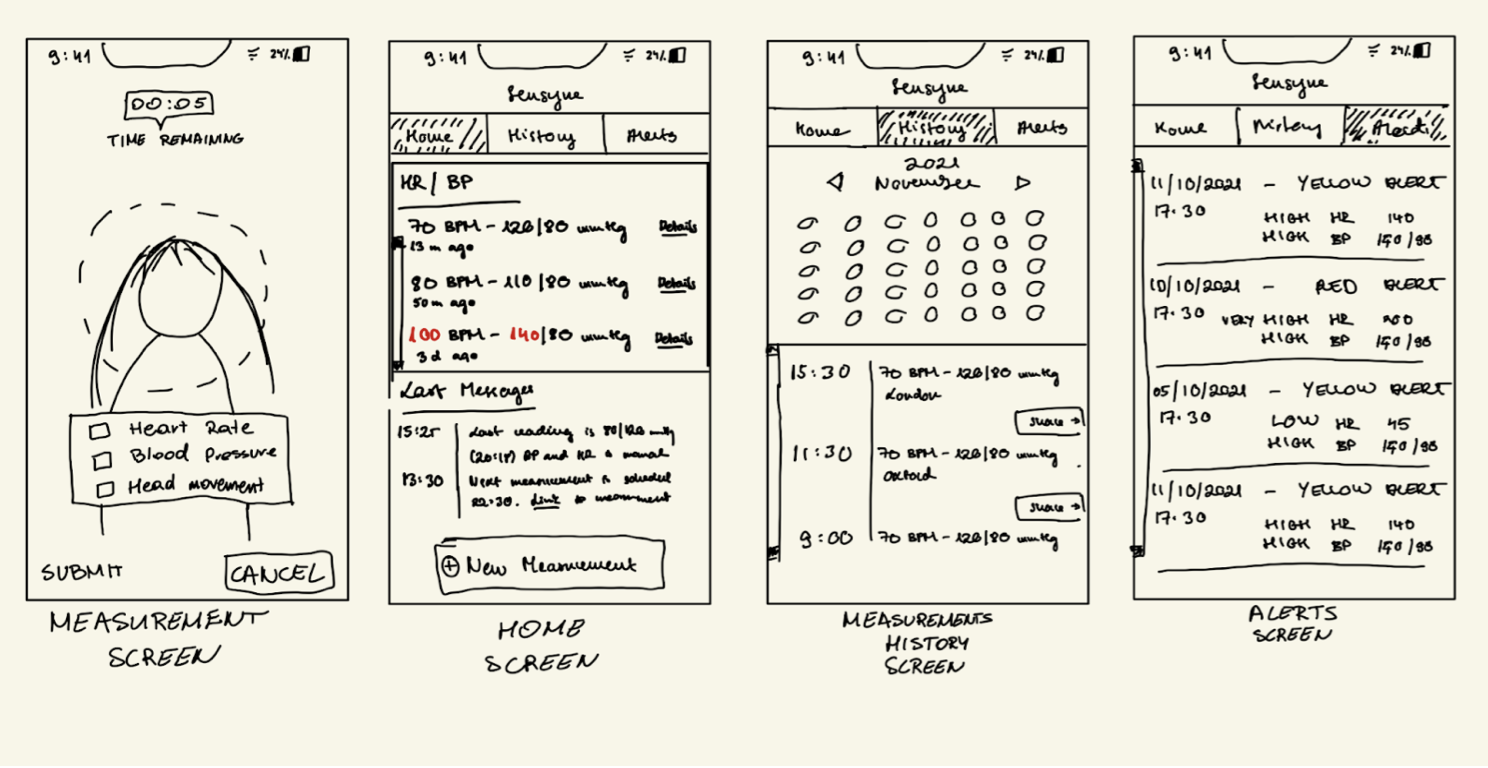 9:41
24%
00:05
TIME REMAINING
Heart Rate
Blood Pressure
Head movement
SUBMIT
CANCEL
MEASUREMENT
SCREEN
9:41
24%
Sensyne
Home
History
Alerts
HR / BP
70 BPM - 120/80 mmHg
Details
13 m ago
80 BPM - 110/80 mmHg
Details
50 m ago
100 BPM - 140/80 mmHg
Details
3 d ago
Last Messages
15:25
Last reading is 80/120 mmHg
BP and HR is normal
13:30
Next measurement is scheduled
22:30. Link to measurement
New Measurement
HOME
SCREEN
9:41
24%
Sensyne
Home
History
Alerts
2021
November
15:30
70 BPM - 120/80 mmHg
London
Share →
11:30
70 BPM - 120/80 mmHg
Oxford
Share →
9:00
70 BPM - 120/80 mmHg
MEASUREMENTS
HISTORY
SCREEN
9:41
24%
Sensyne
Home
History
Alerts
11/10/2021 - YELLOW ALERT
17:30
HIGH HR 140
HIGH BP 150/90
10/10/2021 - RED ALERT
17:30
VERY HIGH HR 200
HIGH BP 150/90
05/10/2021 - YELLOW ALERT
17:30
LOW HR 45
HIGH BP 150/90
11/10/2021 - YELLOW ALERT
17:30
HIGH HR 140
HIGH BP 150/90
ALERTS
SCREEN